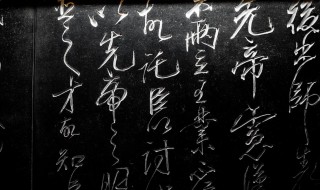 後出師表
先帝慮漢
不兩立王業
故託臣以討
以先帝之明
臣之才故知臣